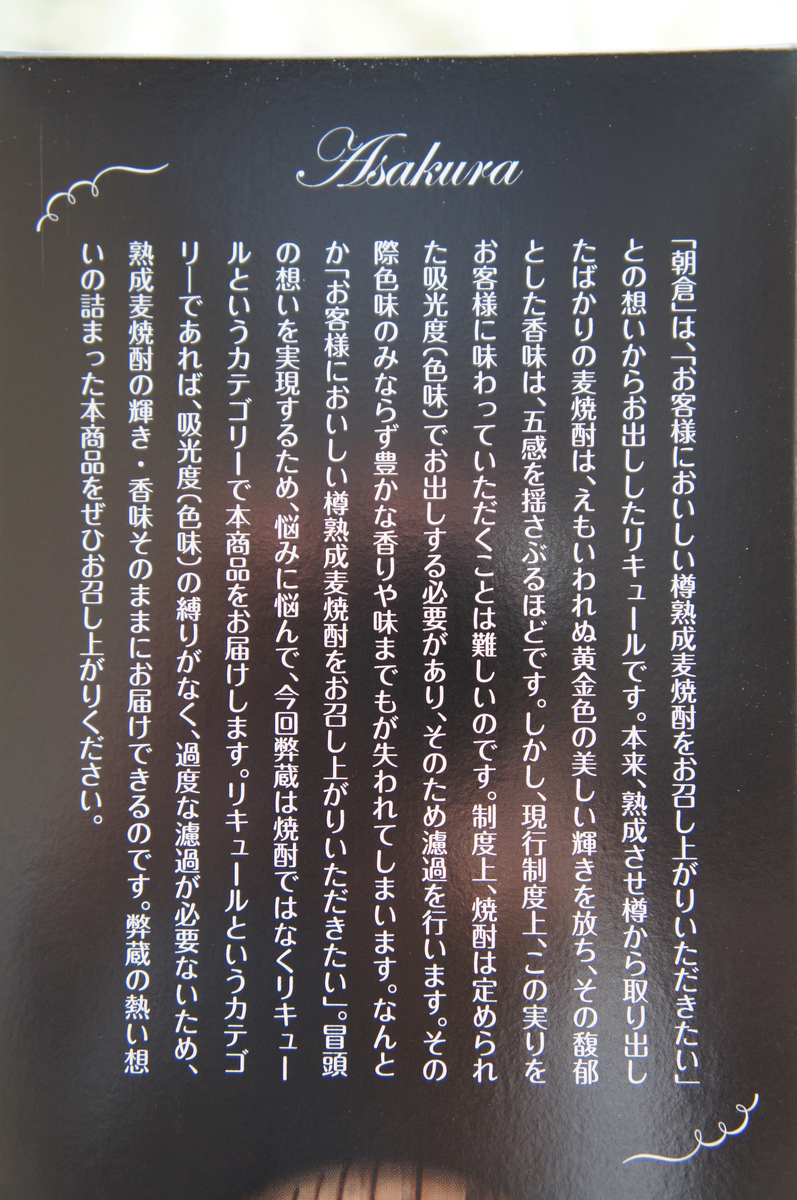 Asakura
「朝倉」は、「お客様においしい樽熟成麦焼酎をお召し上がりいただきたい」
との想いからお出ししたリキュールです。本来、熟成させ樽から取り出し
たばかりの麦焼酎は、えもいわれぬ黄金色の美しい輝きを放ち、その馥郁
とした香味は、五感を揺さぶるほどです。しかし、現行制度上、この実りを
お客様に味わっていただくことは難しいのです。制度上、焼酎は定められ
た吸光度（色味）でお出しする必要があり、そのため濾過を行います。その
際色味のみならず豊かな香りや味までもが失われてしまいます。なんと
か「お客様においしい樽熟成麦焼酎をお召し上がりいただきたい」。冒頭
の想いを実現するため、悩みに悩んで、今回弊蔵は焼酎ではなくリキュー
ルというカテゴリーで本商品をお届けします。リキュールというカテゴ
リーであれば、吸光度（色味）の縛りがなく、過度な濾過が必要ないため、
熟成麦焼酎の輝き・香味そのままにお届けできるのです。弊蔵の熱い想
いの詰まった本商品をぜひお召し上がりください。